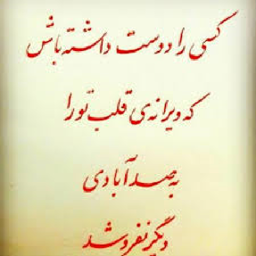 کسی را دوست داشته باش
که ویرانه‌ی قلب تو را
به صد آبادی
دیگر نفروشد